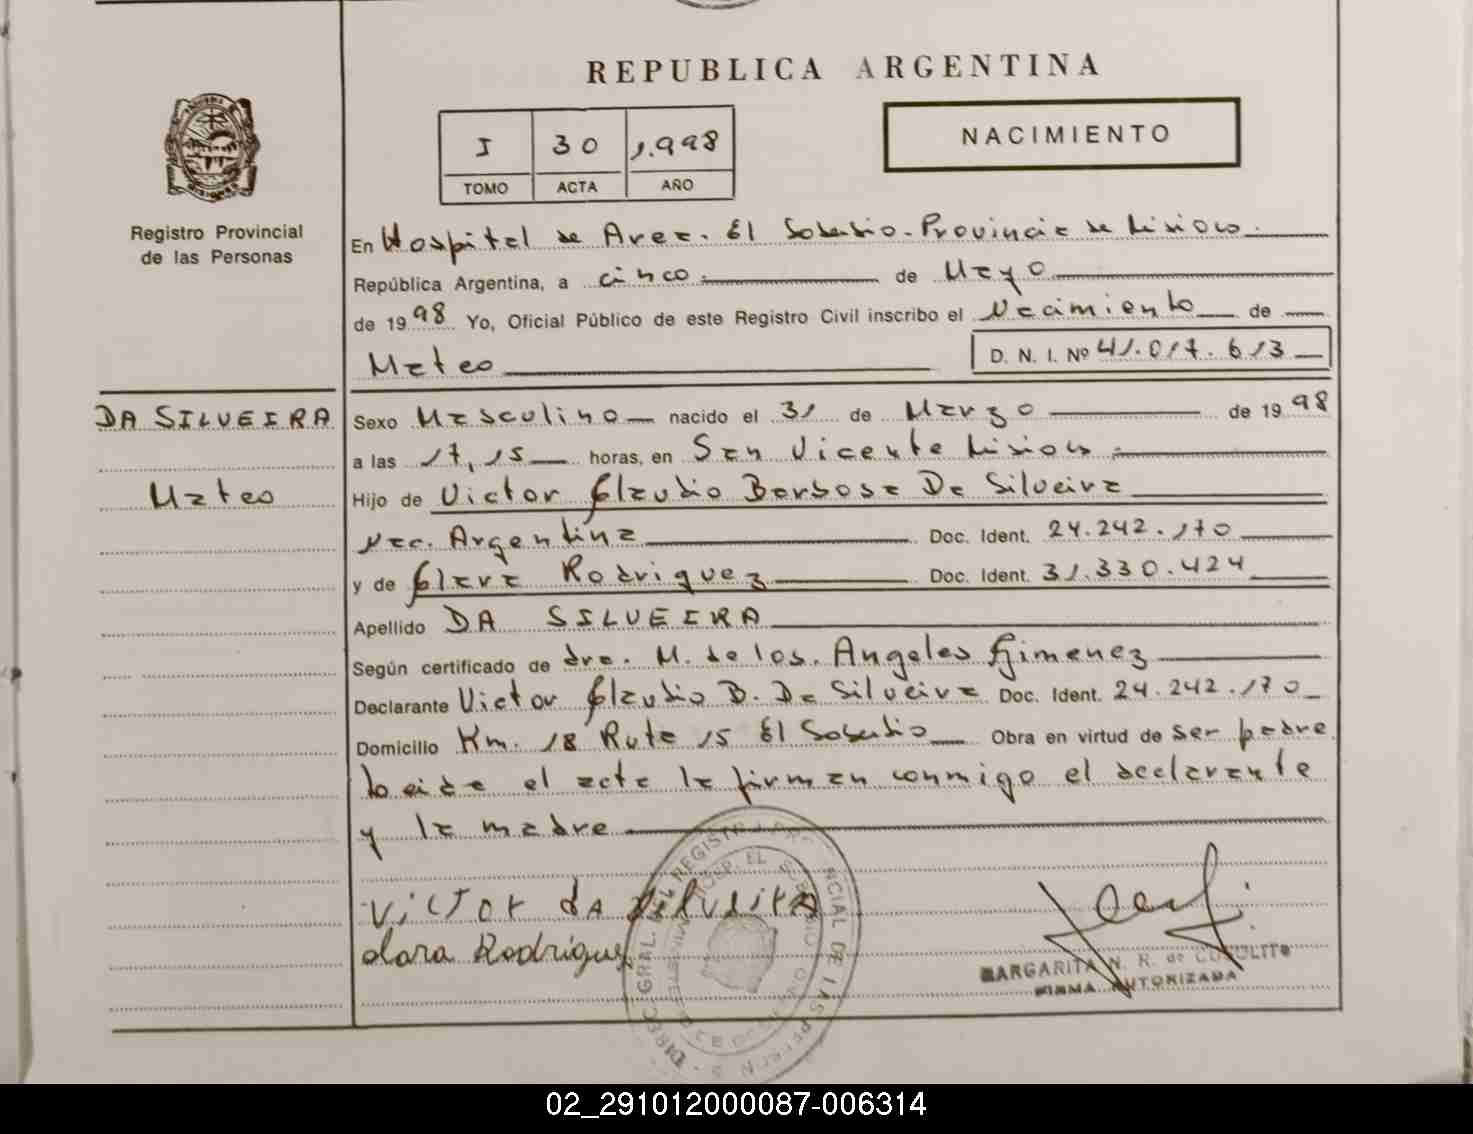 REPUBLICA ARGENTINA
I 30 1.998
TOMO ACTA AÑO
NACIMIENTO
Registro Provincial
de las Personas
En Hospital de Area. El Soberbio. Provincia de Misiones.
República Argentina, a cinco de Mayo
de 1998 Yo, Oficial Público de este Registro Civil inscribo el Nacimiento de
Mateo D. N. I. Nº 41.017.613
DA SILVEIRA
Mateo
Sexo Masculino nacido el 31 de Marzo de 1998
a las 17,15 horas, en San Vicente Misiones
Hijo de Victor Claudio Barbosa Da Silveira
Nac. Argentina Doc. Ident. 24.242.170
y de Clara Rodriguez Doc. Ident. 31.330.424
Apellido DA SILVEIRA
Según certificado de dra. M. de los. Angeles Gimenez
Declarante Victor Claudio B. Da Silveira Doc. Ident. 24.242.170
Domicilio Km. 18 Ruta 15 El Soberbio Obra en virtud de ser padre
Leida el acta la firman conmigo el declarante
y la madre
Victor da Silveira
clara Rodriguez
MARGARITA N. R. de
FIRMA AUTORIZADA
02_291012000087-006314